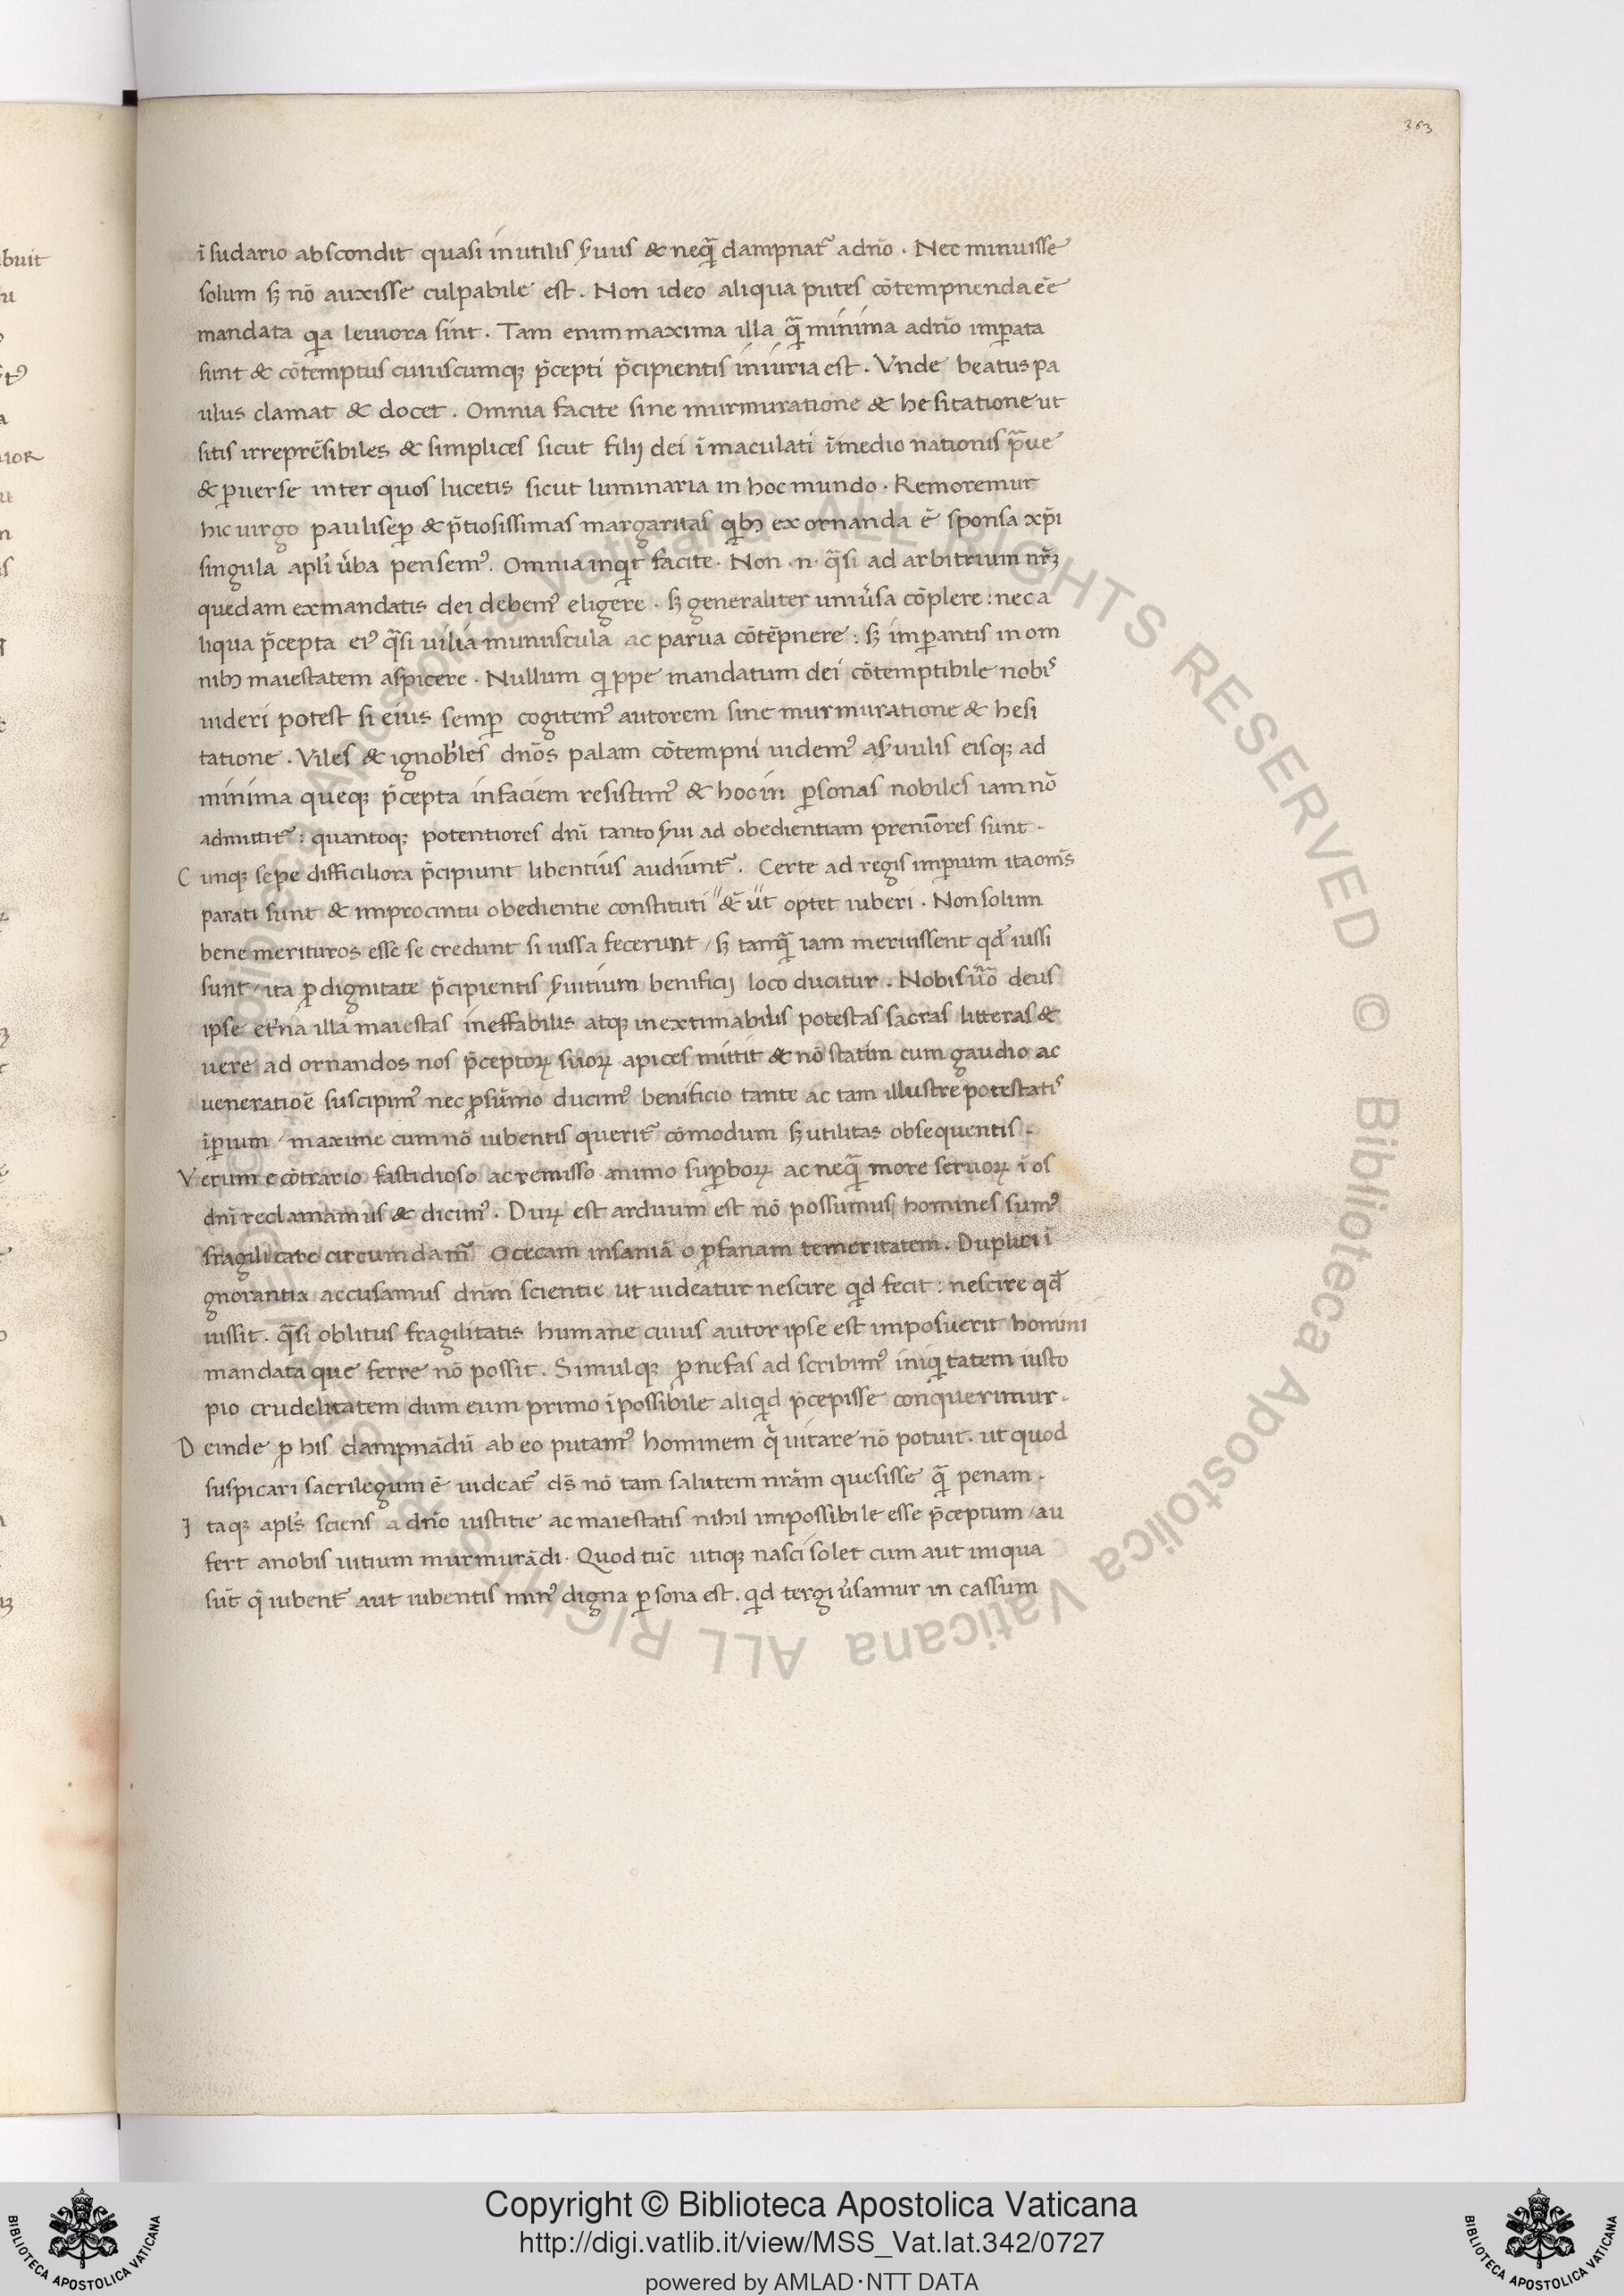 363
ī sudario abscondit quasi inutilis ẜuus & neq̄ dampnat᷑ adn̄o . Nec minuisse
solum sꝫ nō auxisse culpabile est . Non ideo aliqua putes cōtempnenda eē
mandata qia leuiora sint . Tam enim maxima illa q̄ minima adn̄o imꝑata
sunt & cōtemptus cuiuscumqꝫ p̄cepti p̄cipientis iniuria est . Vnde beatus pa
ulus clamat & docet . Omnia facite sine murmuratione & hesitatione ut
sitis irreprēsibiles & simplices sicut filij dei īmaculati ī medio nationis p̄ue
& ꝑuerse inter quos lucetis sicut luminaria in hoc mundo . Remoremur
hic uirgo paulisꝑ & p̄tiosissimas margaritas qibꝫ exornanda ē sponsa xp̄i
singula apl̄i ūba pensemꝰ . Omnia inqit facite . Non .n. q̄si ad arbitrium nr̄ꝫ
quedam ex mandatis dei debemꝰ eligere . sꝫ generaliter uniūsa cōplere : nec a
liqua p̄cepta eiꝰ q̄si uilia munuscula ac parua cōtēpnere : sꝫ imꝑantis in om
nibꝫ maiestatem aspicere . Nullum qippe mandatum dei cōtemptibile nobis
uideri potest si eius semꝑ cogitemꝰ autorem sine murmuratione & hesi
tatione . Viles & ignobiles dn̄os palam cōtempni uidemꝰ aẜuulis eisqꝫ ad
minima queqꝫ p̄cepta in faciem resistimꝰ & hoc in ꝑsonas nobiles iam nō
admittit᷑ : quantoqꝫ potentiores dn̄i tanto ẜui ad obedientiam preniores sunt .
C unqꝫ sepe difficiliora p̄cipiunt libentius audiunt᷑ . Certe ad regis imꝑium ita om̄s
parati sunt & improcintu obedientie constituti & ut optet iuberi . Non solum
bene merituros esse se credunt si iussa fecerunt / sꝫ tamq̄ iam meruissent qd̄ iussi
sunt / ita ꝓ dignitate p̄cipientis ẜuitium benificij loco ducitur . Nobis ūo deus
ipse et̄na illa maiestas ineffabilis atqꝫ inextimabilis potestas sacras litteras &
uere ad ornandos nos p̄ceptoꝝ suoꝝ apices mittit & nō statim cum gaudio ac
ueneratiōe suscipimꝰ nec ꝓ sūmo ducimꝰ benificio tante ac tam illustre potestatis
īꝑium / maxime cum nō iubentis querit᷑ cōmodum sꝫ utilitas obsequentis .
V erum e cōtrario fastidioso ac remisso animo suꝑboꝝ ac neq̄ more seruoꝝ ī os
dn̄i reclamamus & dicimꝰ . Duꝝ est arduum est nō possumus / homines sumꝰ
fragili carc circumdam᷑ O cecam insaniā o ꝓfanam temeritatem . Duplici ī
gnorantia accusamus dn̄m scientie ut uideatur nescire qid fecit : nescire qd̄
iussit . q̄si oblitus fragilitatis humane cuius autor ipse est imposuerit homini
mandata que ferre nō possit . Simulqꝫ ꝓ nefas ad scribimꝰ iniqitatem iusto
pio crudelitatem / dum eum primo īpossibile aliqid p̄cepisse conquerimur .
D einde ꝓ his dampnādū ab eo putamꝰ hominem q̄ uitare nō potuit . ut quod
suspicari sacrilegum ē uideat᷑ ds̄ nō tam salutem nr̄am quesisse q̄ penam .
I taqꝫ apl̄s sciens a dn̄o iustitie ac maiestatis nihil impossibile esse p̄ceptum / au
fert a nobis uitium murmurādi . Quod tūc utiqꝫ nasci solet cum aut iniqua
sūt q̄ iubent᷑ aut iubentis minꝰ digna ꝑsona est . qid tergiūsamur in cassum
Copyright © Biblioteca Apostolica Vaticana
http://digi.vatlib.it/view/MSS_Vat.lat.342/0727
powered by AMLAD·NTT DATA